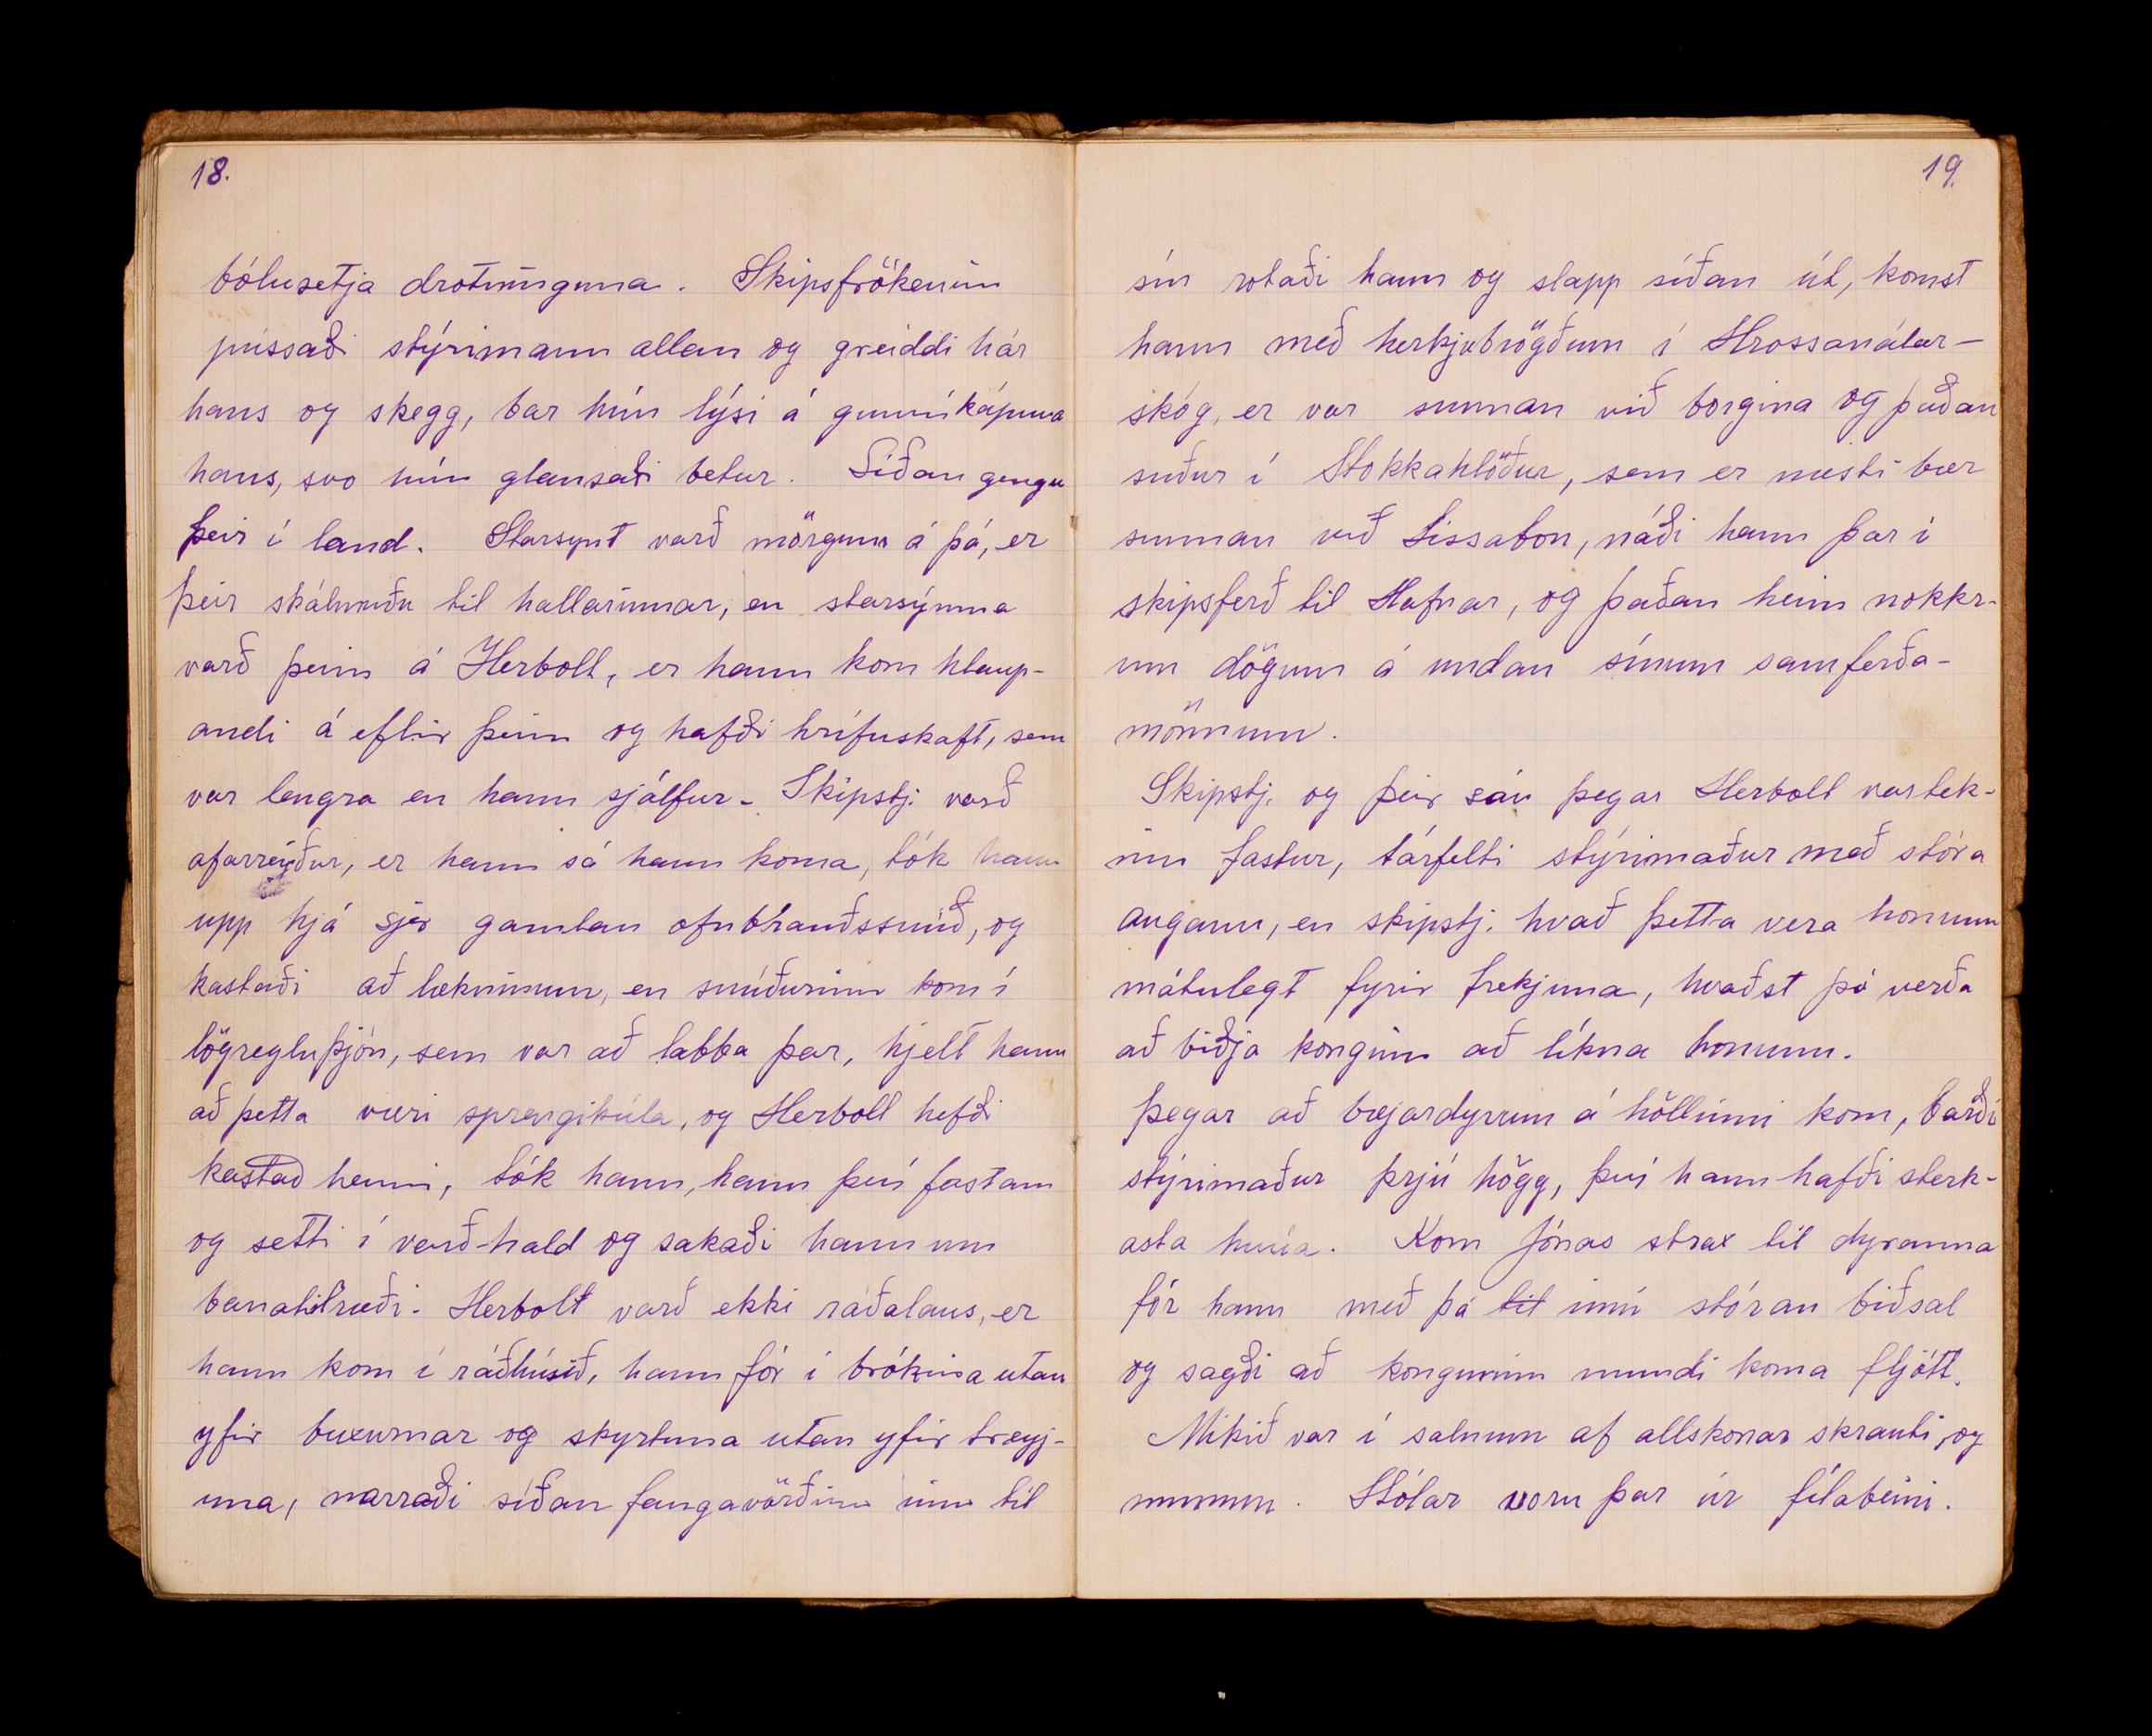 18.
bólusetja drotninguna. Skipsfrökenin
pússaði stýrimann allan og greiddi hár
hans og skegg, bar hún lýsi á gummíkápuna
hans, svo hún glansaði betur. Síðan gengu
þeir í land. Starsynt varð mörgum á þá, er
þeir skálmuðu til hallarinnar, en starsýnna
varð þeim á Herbolt, er hann kom hlaup-
andi á eftir þeim og hafði hrífuskaft, sem
var lengra en hann sjálfur. Skipstj. varð
afarreiður, er hann sá hann koma, tók hann
upp hjá sjer gamlan ofnbrauðssnúð, og
kastaði að lækninum, en snúðurinn kom í
lögregluþjón, sem var að labba þar, hjelt hann
að þetta væri sprengikúla, og Herbolt hefði
kastað henni, tók hann, hann því fastan
og setti í varð-hald og sakaði hann um
banatilræði. Herbolt varð ekki ráðalaus, er
hann kom í ráðhúsið, hann fór í brókina utan
yfir buxurnar og skyrtuna utan yfir treyj-
una, narraði síðan fangavörðinn inn til
19.
sín rotaði hann og slapp síðan út, komst
hann með herkjubrögðum í Hrossanálar-
skóg, er var sunnan við borgina og þaðan
suður í Stokkahlöður, sem er næsti bær
sunnan við Lissabon, náði hann þar í
skipsferð til Hafnar, og þaðan heim nokkr-
um dögum á undan sínum samferða-
mönnum.
Skipstj. og þeir sáu þegar Herbolt var tek-
inn fastur, tárfelti stýrimaður með stóra
auganu, en skipstj. hvað þetta vera honum
mátulegt fyrir frekjuna, kvaðst þó verða
að biðja konginn að líkna honum.
Þegar að bæjardyrum á höllinni kom, barði
stýrimaður þrjú högg, því hann hafði sterk-
asta hnúa. Kom Jónas strax til dyranna
fór hann með þá til inní stóran biðsal
og sagði að kongurinn mundi koma fljótt.
Mikið var í salnum af allskonar skrauti, og
munum. Stólar voru þar úr fílabeini.